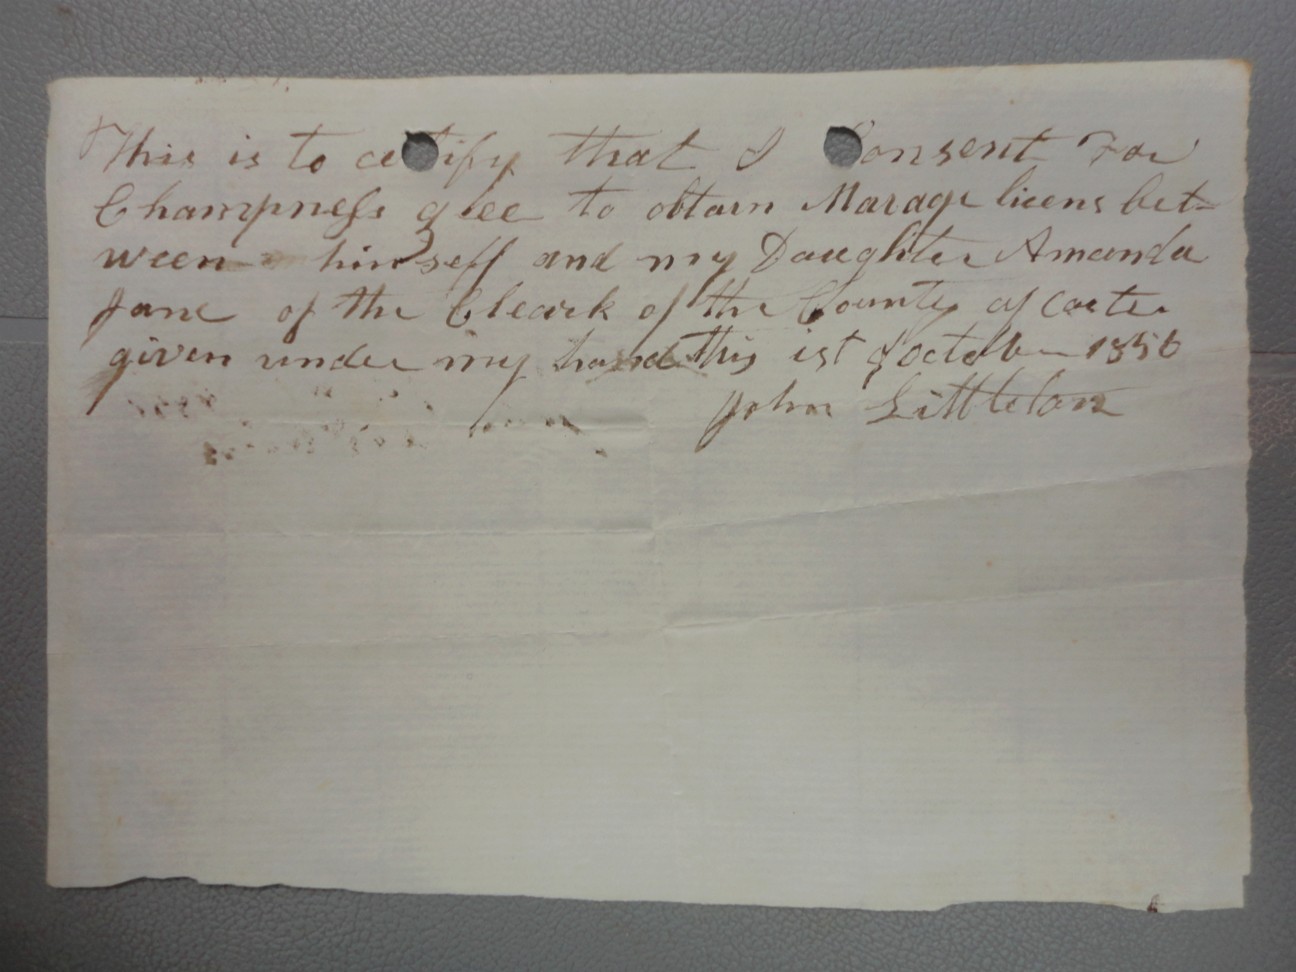 This is to certify that I Consent For
Champness glee to obtain Marage licens bet-
ween himself and my Daughter Amanda
Jane of the Cleark of the County of Carter
given under my hand this 1st of october 1856
John Littleton